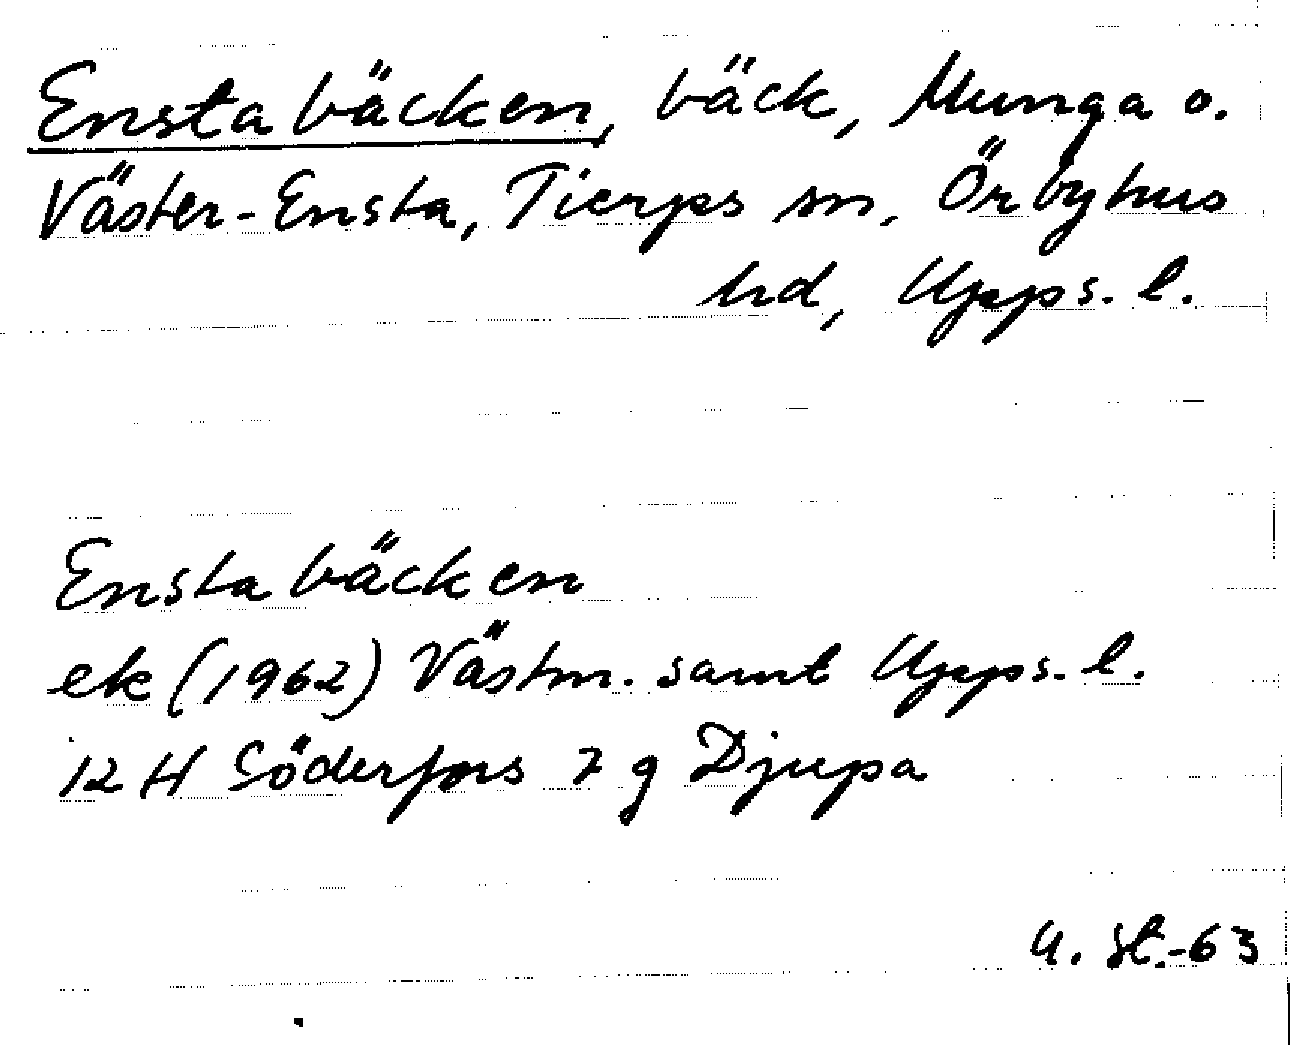 Enstabäcken, bäck, Munga o.
Väster-Ensta, Tierps sn, Örbyhus
hd, Upps. l.
Enstabäcken
ek (1962) Västm. samt Upps. l.
12 H Söderfors 7 g Djupa
U. St.-63